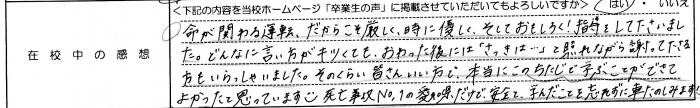 <下記の内容を当校ホームページ「卒業生の声」に掲載させていただいてもよろしいですか> はい ・ いいえ
在校中の感想
命が関わる運転、だからこそ厳しく、時に優しく、そしておもしろく!指導をして下さいまし
た。どんなに言い方がキツくても、おわった後には「さっきは…」と照れながら謝って下さる
方もいらっしゃいました。そのくらい皆さんいい方で、本当にこの
学ぶことができて
よかったと思っています。死亡事故No.1の愛知県だけど、安全で、学んだことを忘れずに車にのります!